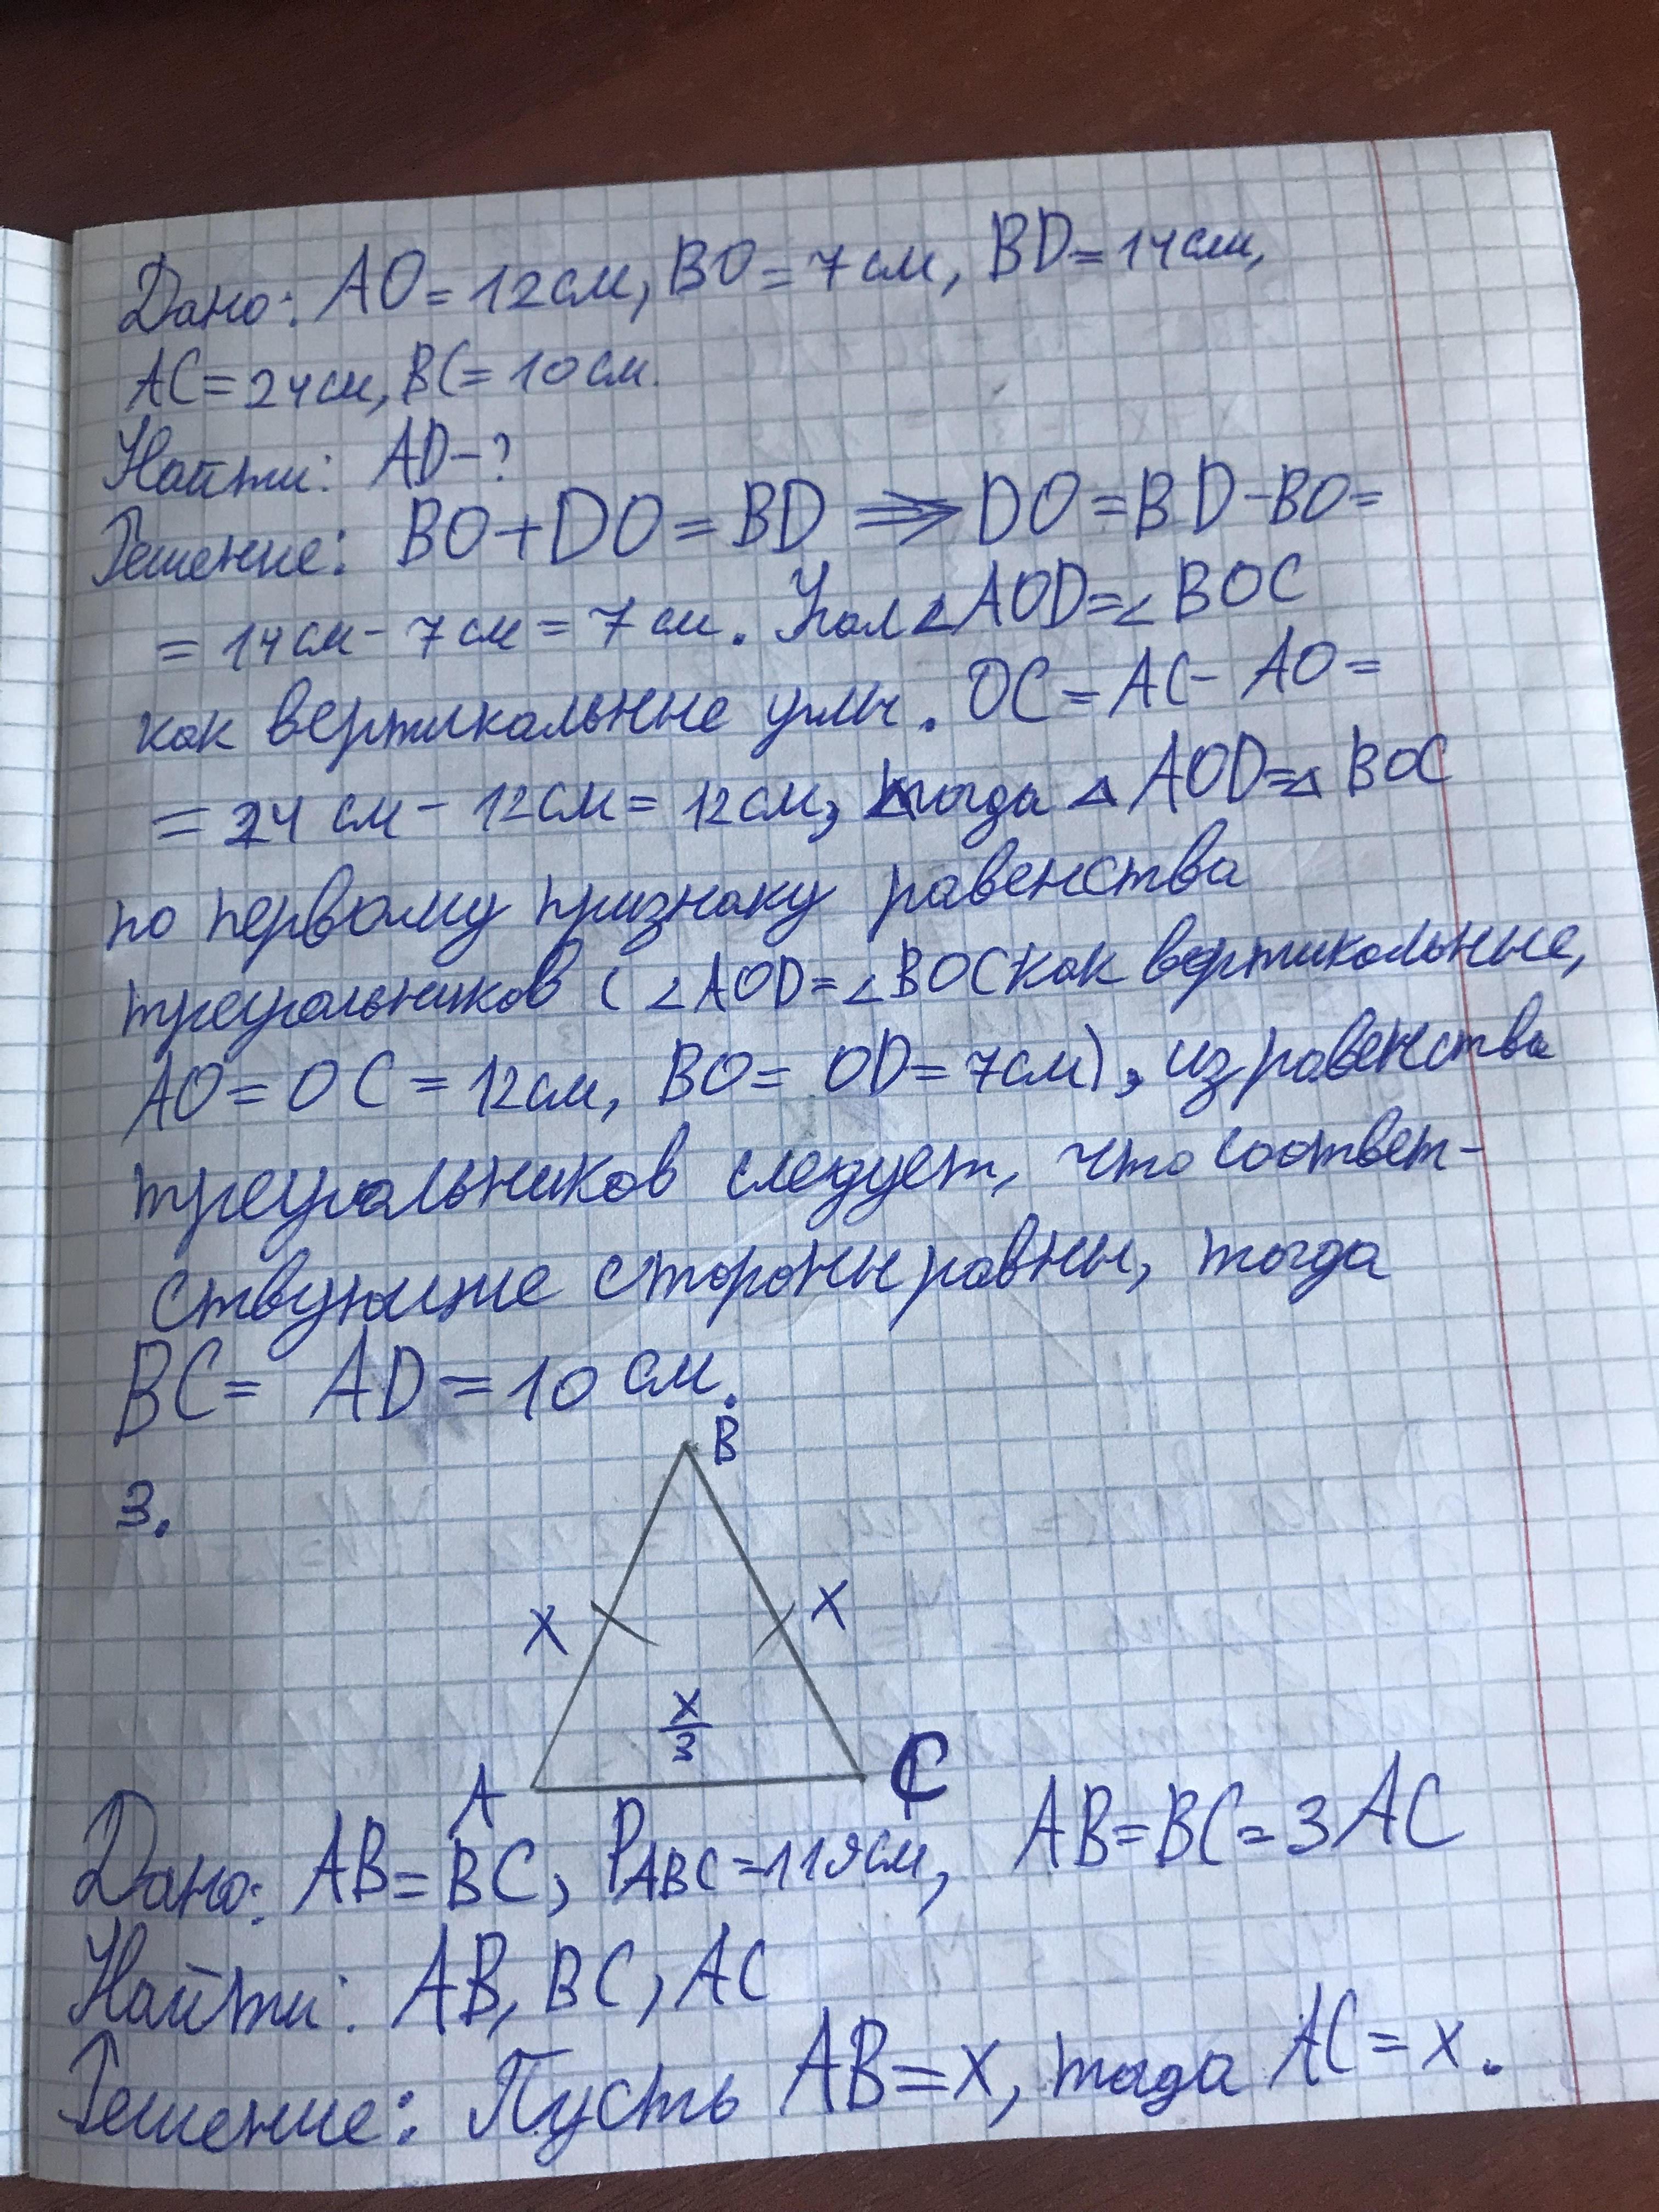 Дано: AO=12см, BO=7см, BD=14см,
AC=24см, BC=10см.
Найти: AD-?
Решение: BO+DO=BD ⇒ DO=BD-BO=
=14см-7см=7см. Угол ∠AOD=∠BOC
как вертикальные углы. OC=AC-AO=
=24см-12см=12см, тогда △AOD=△BOC
по первому признаку равенства
треугольников (∠AOD=∠BOC как вертикальные,
AO=OC=12см, BO=OD=7см), из равенства
треугольников следует, что соответ-
ствующие стороны равны, тогда
BC=AD=10см.
B
3.
x x
x/3
A C
Дано: AB=BC, PABC=119см, AB=BC=3AC
Найти: AB, BC, AC
Решение: Пусть AB=x, тогда AC=x.